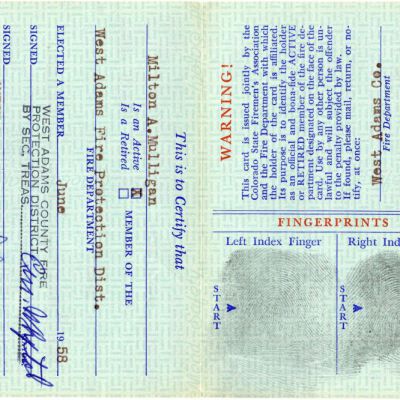 This is to Certify that
Milton A. Mulligan
Is an Active [X] MEMBER OF THE
Is a Retired [ ]
West Adams Fire Protection Dist.
FIRE DEPARTMENT
ELECTED A MEMBER June 1958
SIGNED
WEST ADAMS COUNTY FIRE
PROTECTION DISTRICT
BY SEC. TREAS.
SIGNED
WARNING!
This card is issued jointly by the
Colorado State Firemen's Association
and the Fire Department with which
the holder of the card is affiliated.
Its purpose is to identify the holder
as an official and bona-fide ACTIVE
or RETIRED member of the fire de-
partment designated on the face of the
card. Use by any other person is un-
lawful and will subject the offender
to the penalty provided by law.
If found, please mail, return, or no-
tify, at once:
West Adams Co.
Fire Department
FINGERPRINTS
Left Index Finger
Right Ind
START
START